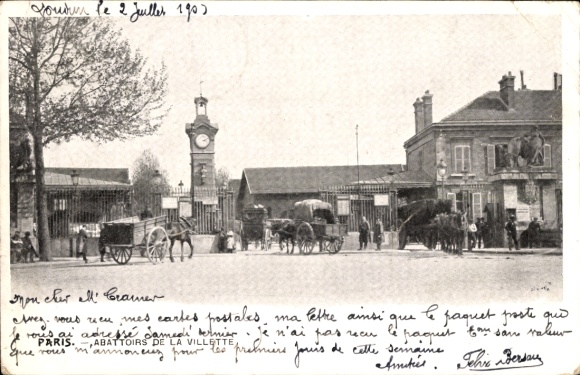 le 2 Juillet 1903
Mon cher Mr Cramer
Avez-vous reçu mes cartes postales, ma lettre ainsi que le paquet poste que
je vous ai adressé Samedi dernier. Je n'ai pas reçu le paquet Eon sans valeur
PARIS. — ABATTOIRS DE LA VILLETTE
que vous m'annonciez pour les premiers Jours de cette semaine
Amitiés. Félix